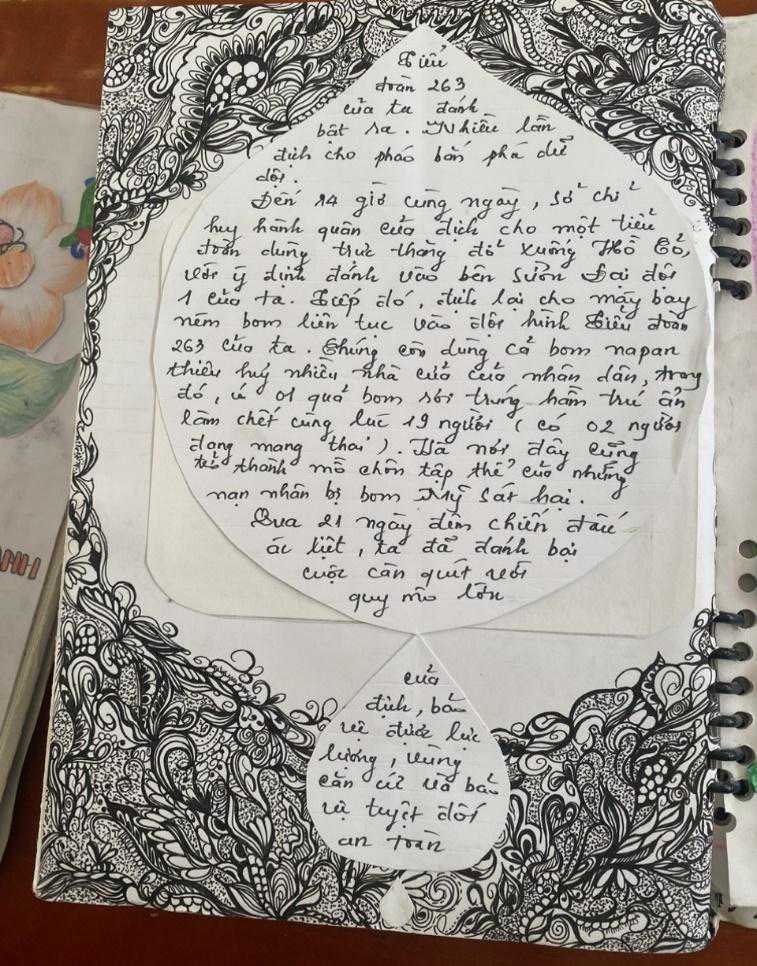 Tiểu
đoàn 263
của ta đánh
bật ra. Nhiều lần
địch cho pháo bắn phá dữ
dội.
Đến 14 giờ cùng ngày, sở chỉ
huy hành quân của địch cho một tiểu
đoàn dùng trực thăng đổ xuống Hồ Cỏ,
với ý định đánh vào bên sườn Đại đội
1 của ta. Tiếp đó, địch lại cho máy bay
ném bom liên tục vào đội hình Tiểu đoàn
263 của ta. Chúng còn dùng cả bom napan
thiêu huỷ nhiều nhà cửa của nhân dân, trong
đó, có 01 quả bom rơi trúng hầm trú ẩn
làm chết cùng lúc 19 người (có 02 người
đang mang thai). Và nơi đây cũng
trở thành mồ chôn tập thể của những
nạn nhân bị bom Mỹ sát hại.
Qua 21 ngày đêm chiến đấu
ác liệt, ta đã đánh bại
cuộc càn quét với
quy mô lớn
của
địch, bảo
vệ được lực
lượng, vùng
căn cứ và bảo
vệ tuyệt đối
an toàn